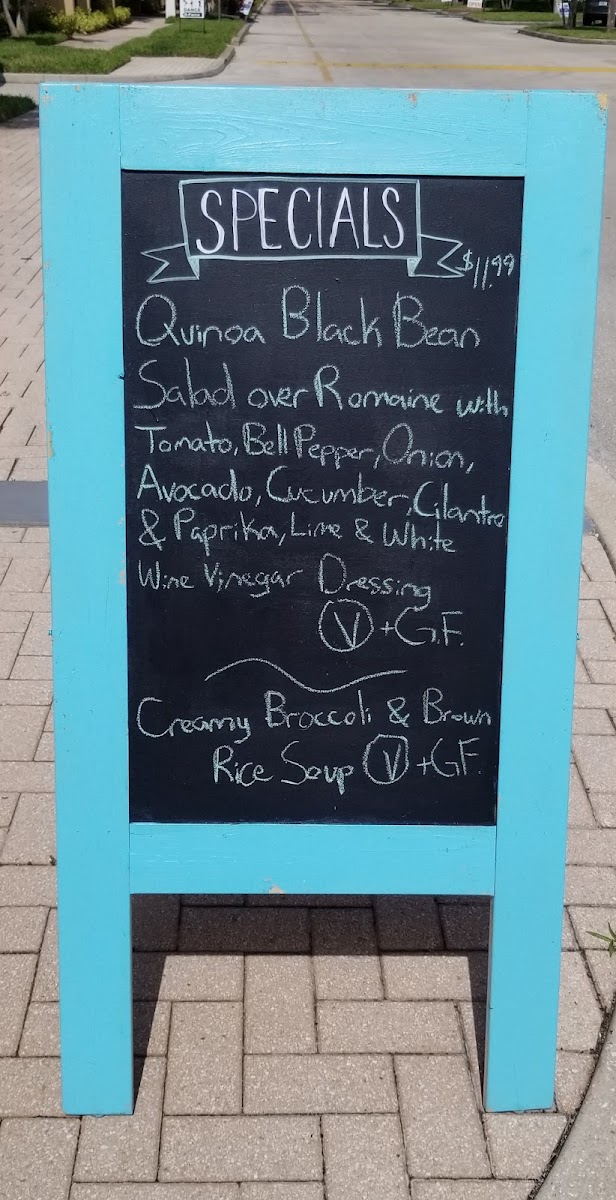 SPECIALS
$11.99
Quinoa Black Bean
Salad over Romaine with
Tomato, Bell Pepper, Onion,
Avocado, Cucumber, Cilantro
& Paprika, Lime & White
Wine Vinegar Dressing
V + G.F.
Creamy Broccoli & Brown
Rice Soup V + GF.